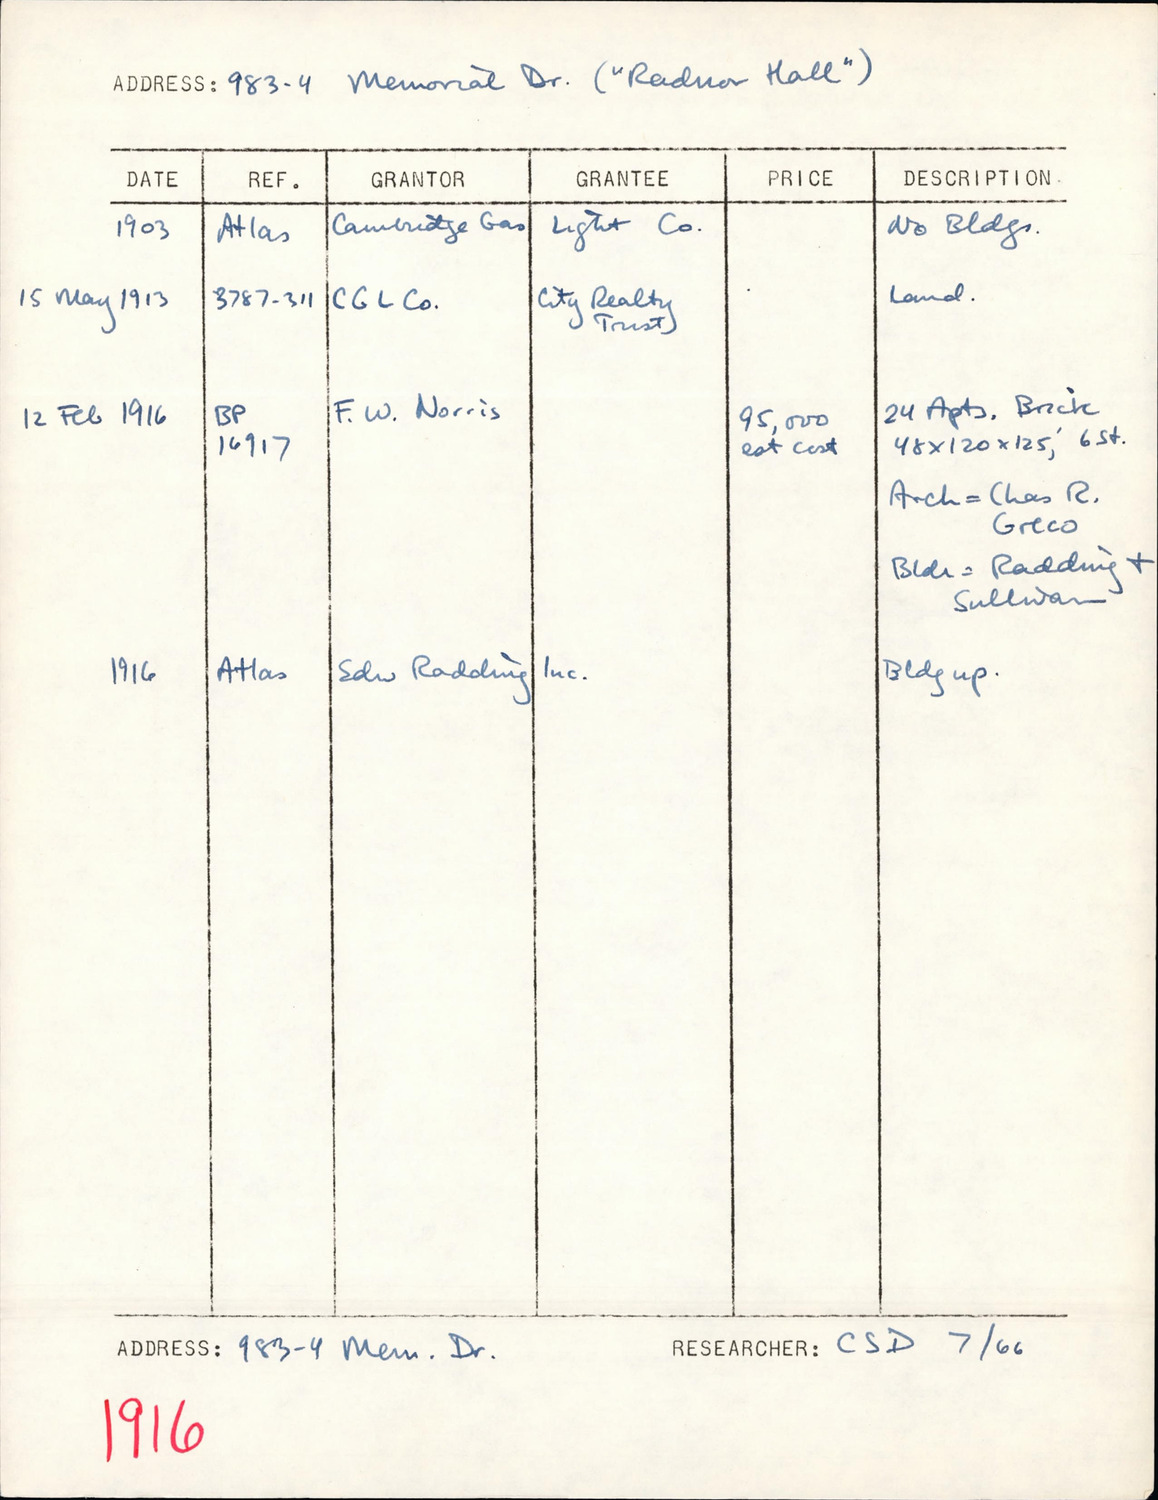 ADDRESS: 983-4 Memorial Dr. ("Radnor Hall")
DATE REF. GRANTOR GRANTEE PRICE DESCRIPTION
1903 Atlas Cambridge Gas Light Co. No Bldgs.
15 May 1913 3787-311 C G L Co. City Realty Land.
Trust
12 Feb 1916 BP F. W. Norris 95,000 24 Apts. Brick
16917 est cost 48x120x125,' 6 St.
Arch = Chas R.
Greco
Bldr = Radding +
Sullivan
1916 Atlas Edw Radding Inc. Bldg up.
ADDRESS: 983-4 Mem. Dr. RESEARCHER: CSD 7/66
1916